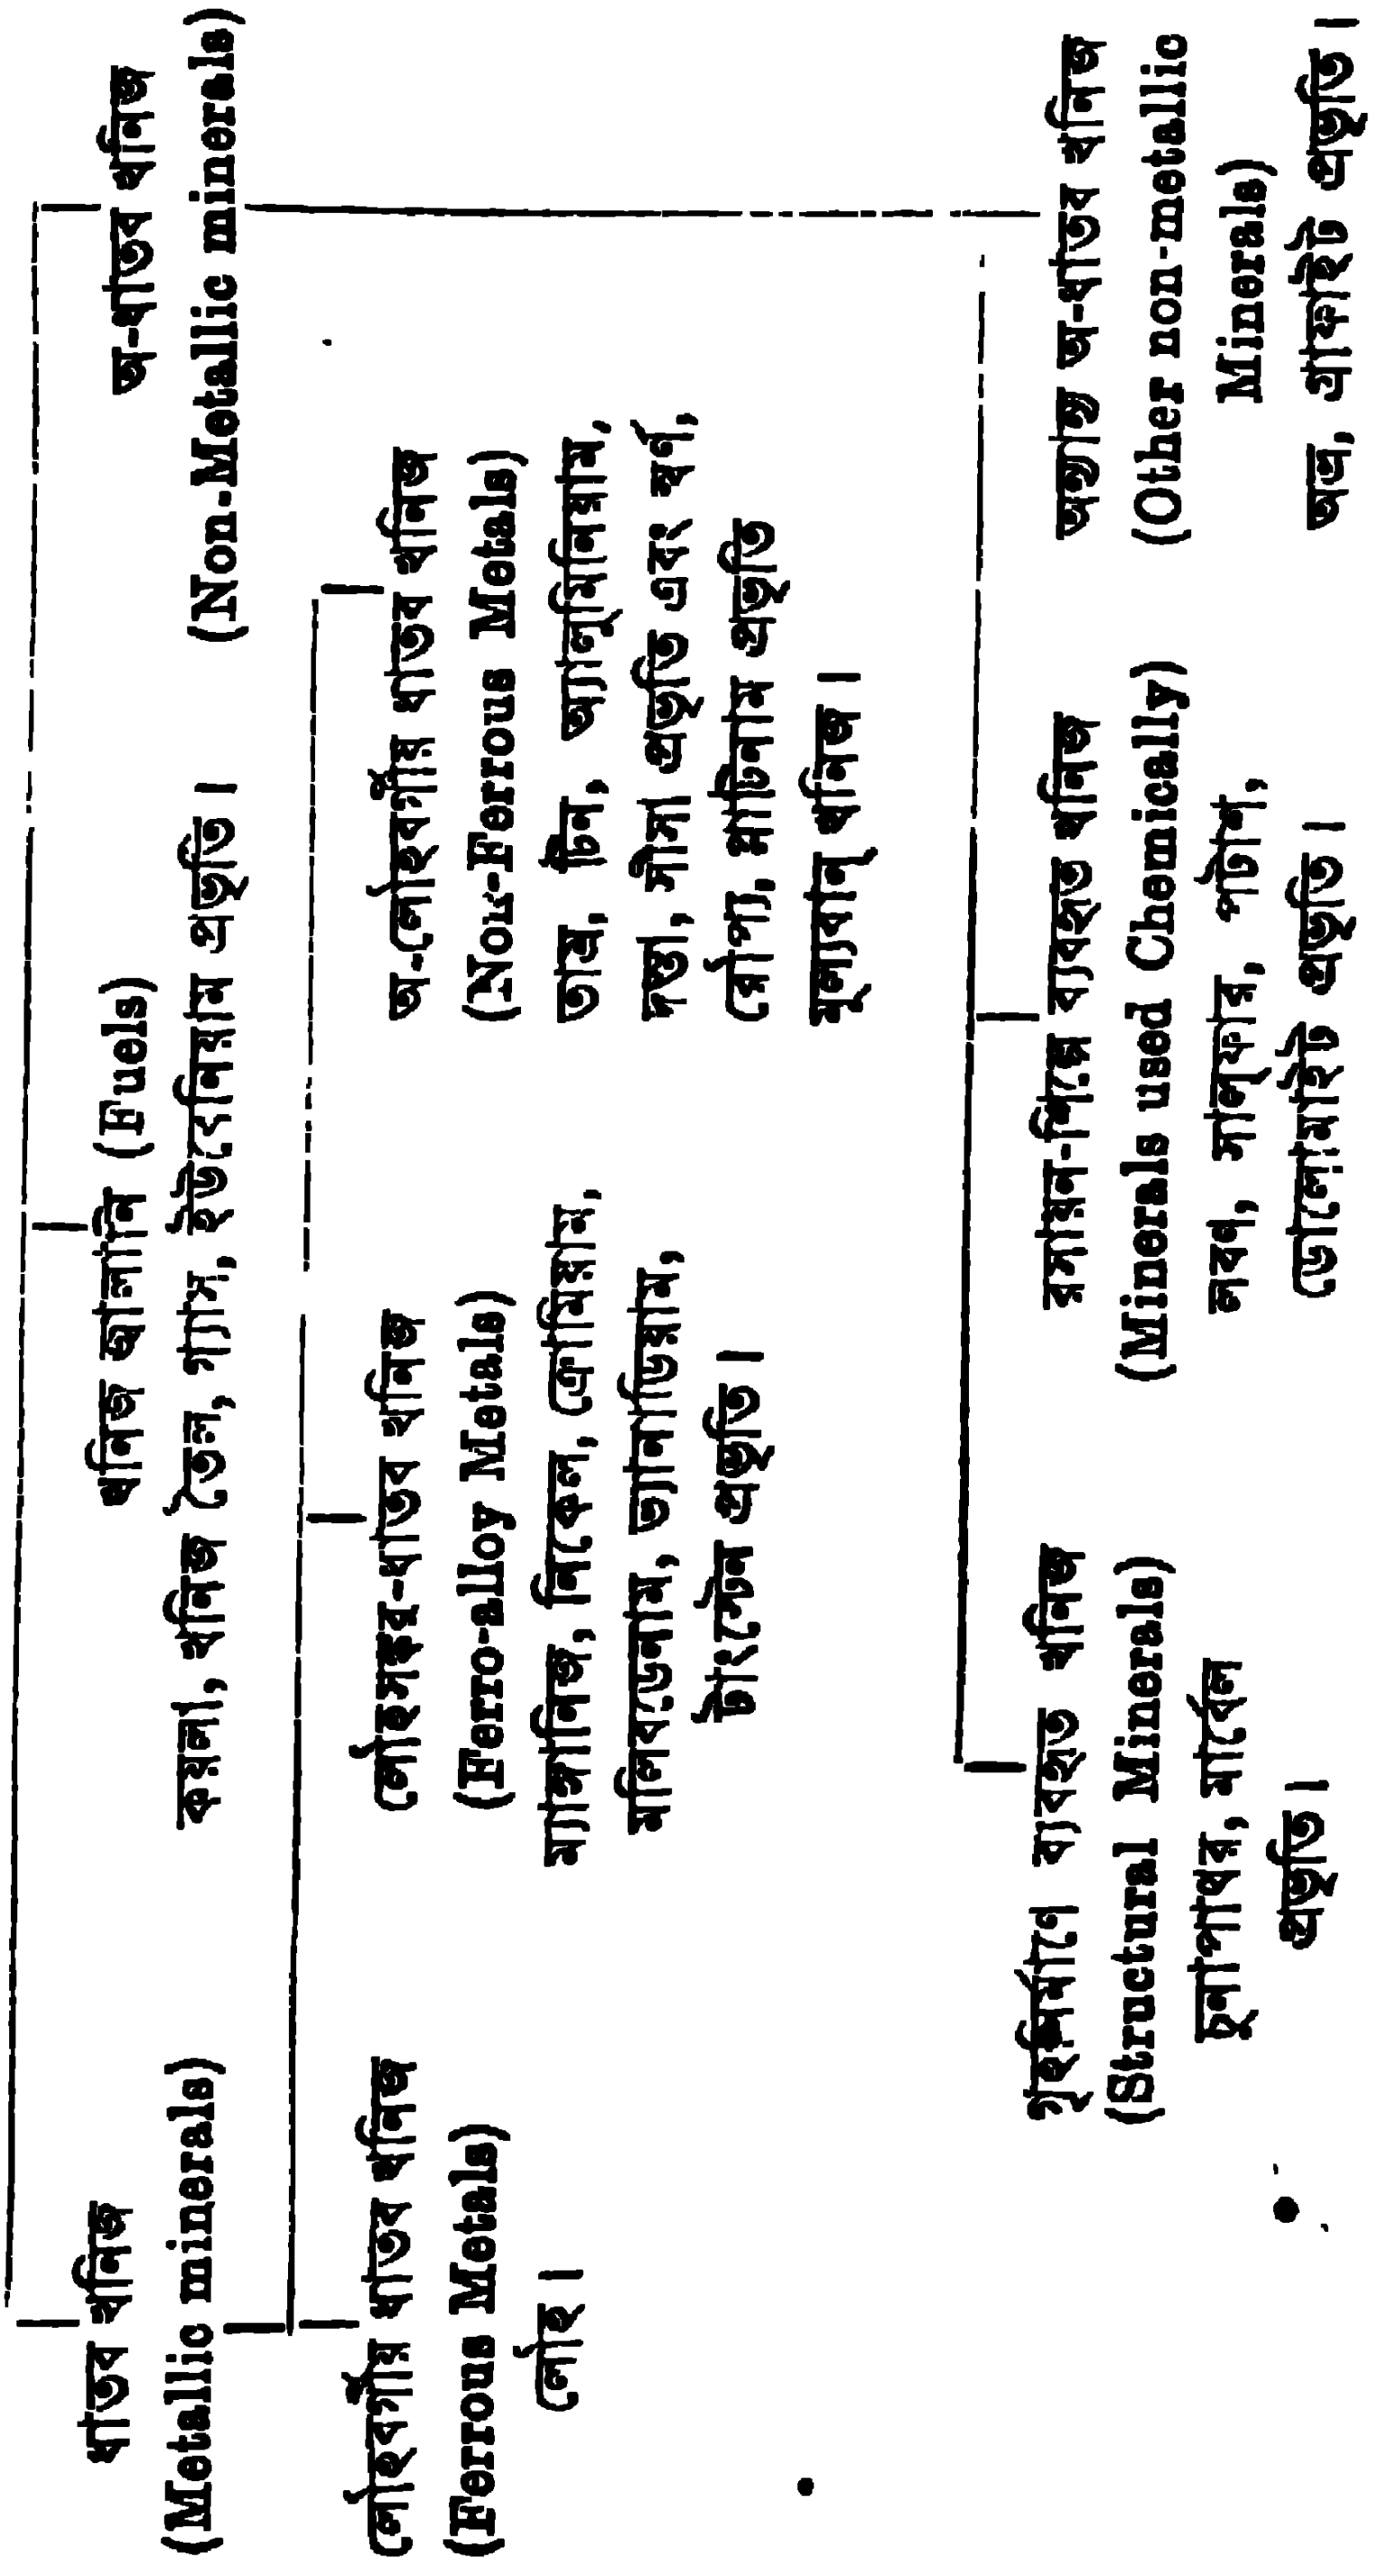 ধাতব খনিজ
(Metallic minerals)
খনিজ জ্বালানি (Fuels)
কয়লা, খনিজ তৈল, গ্যাস, ইউরেনিয়াম প্রভৃতি।
অ-ধাতব খনিজ
(Non-Metallic minerals)
লৌহবর্গীয় ধাতব খনিজ
(Ferrous Metals)
লৌহ।
লৌহসঙ্কর-ধাতব খনিজ
(Ferro-alloy Metals)
ম্যাঙ্গানিজ, নিকেল, ক্রোমিয়াম,
মলিবডেনাম, ভ্যানাডিয়াম,
টাংস্টেন প্রভৃতি।
অ-লৌহবর্গীয় ধাতব খনিজ
(Non-Ferrous Metals)
তাম্র, টিন, অ্যালুমিনিয়াম,
দস্তা, সীসা প্রভৃতি এবং স্বর্ণ,
রৌপ্য, প্লাটিনাম প্রভৃতি
মূল্যবান্ খনিজ।
গৃহনির্মাণে ব্যবহৃত খনিজ
(Structural Minerals)
চুনাপাথর, মার্বেল
প্রভৃতি।
রসায়ন-শিল্পে ব্যবহৃত খনিজ
(Minerals used Chemically)
লবণ, সাল্‌ফার, পটাশ,
ডোলোমাইট প্রভৃতি।
অন্যান্য অ-ধাতব খনিজ
(Other non-metallic
Minerals)
অভ্র, গ্রাফাইট প্রভৃতি।